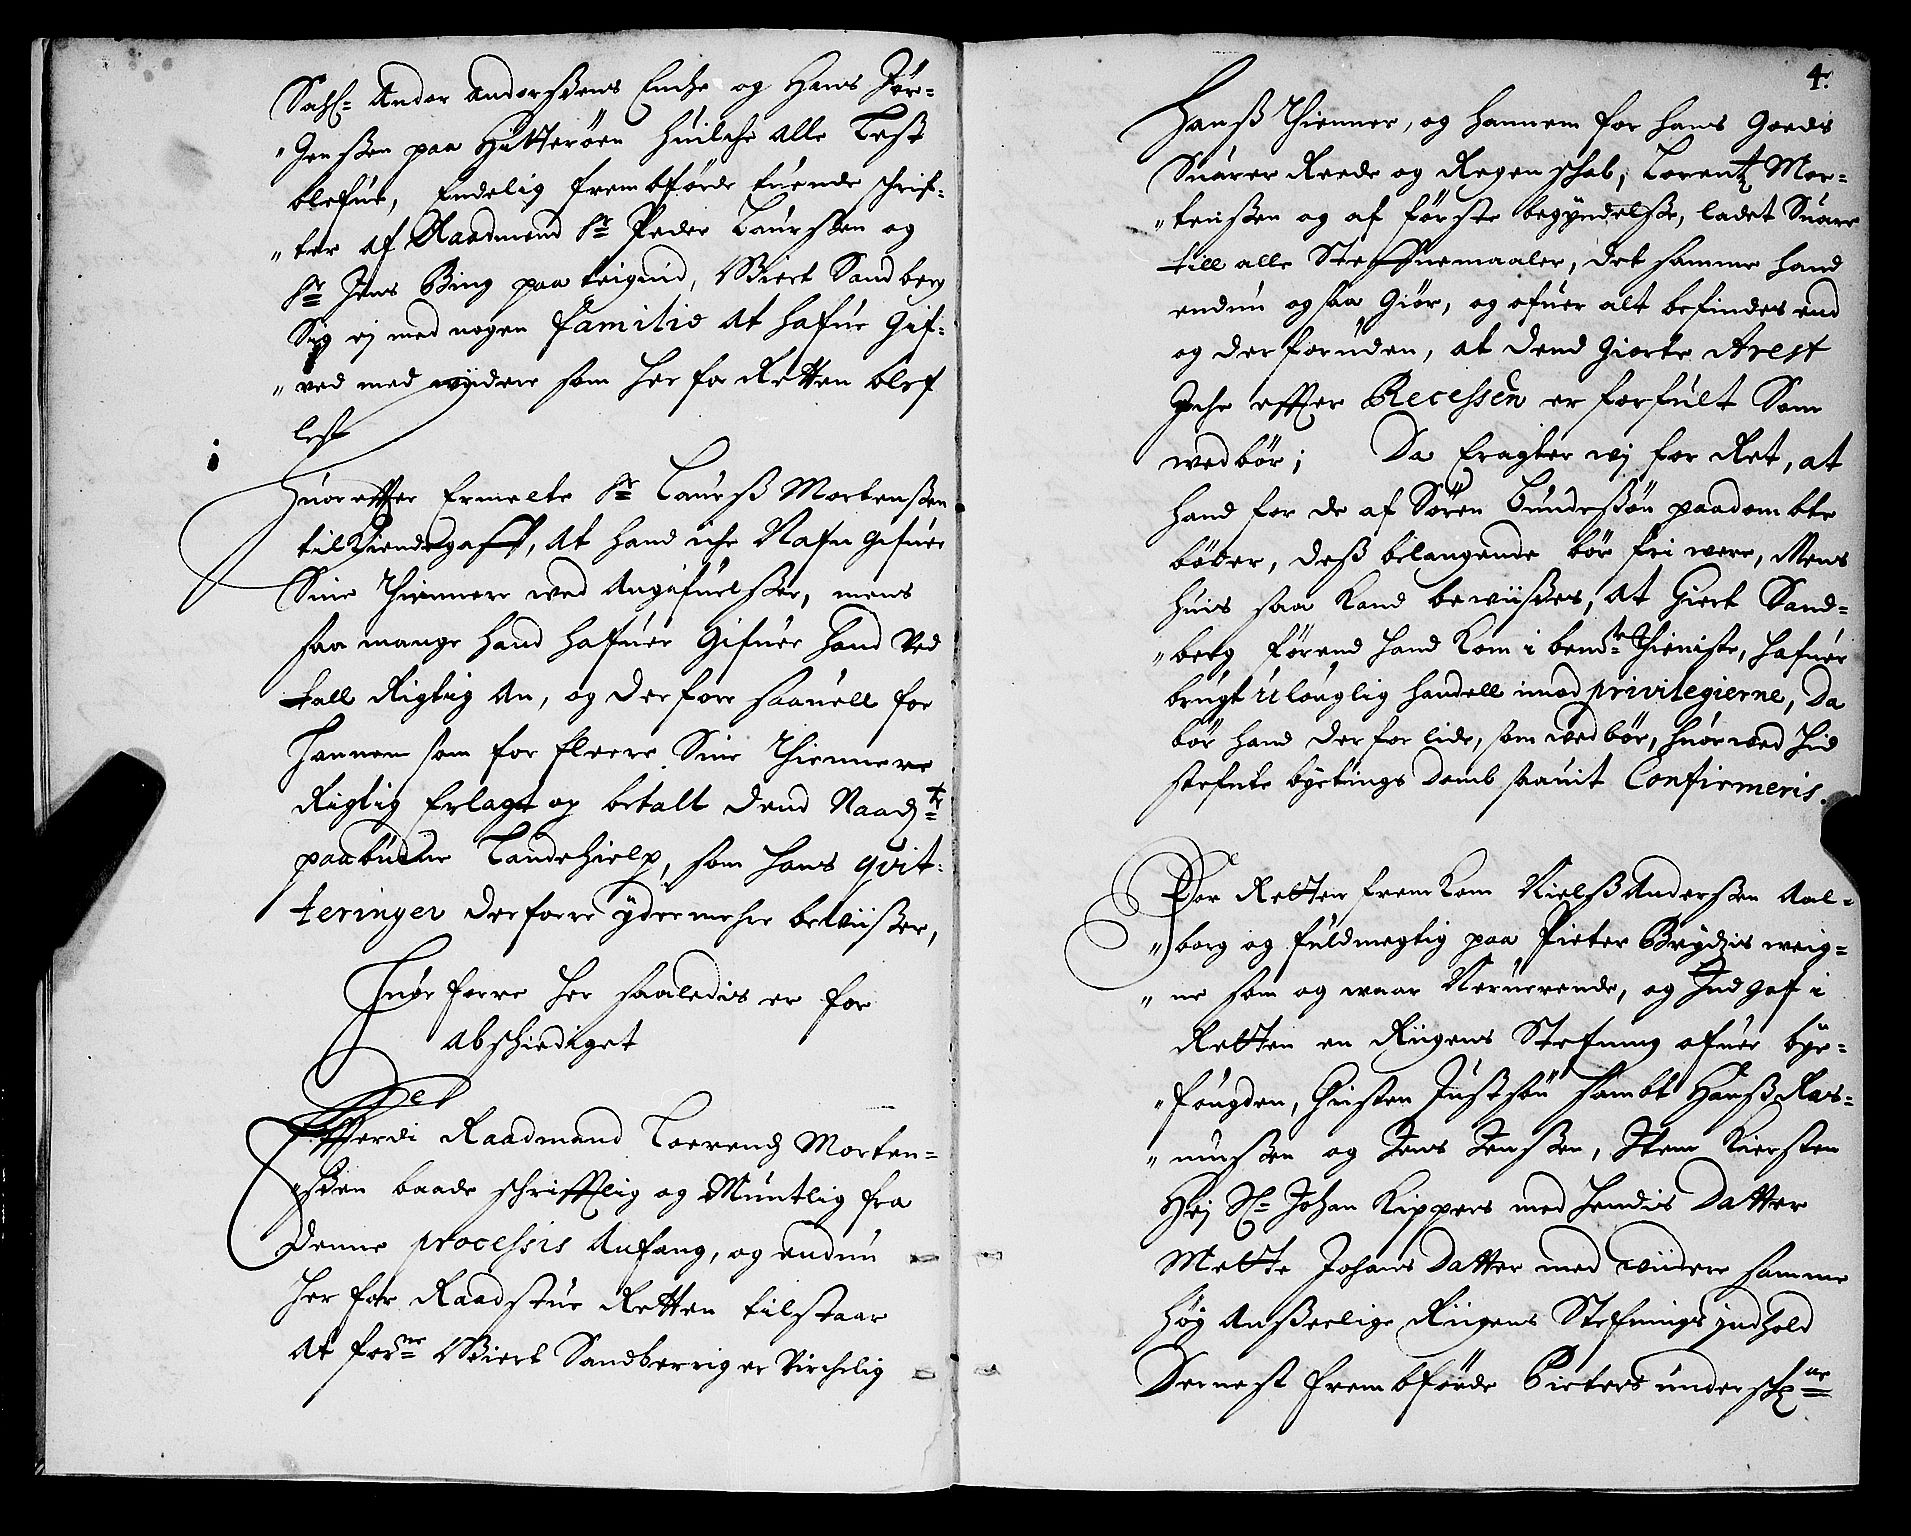 Sahl= Ander Anderßens Encke og Hans Jør=
"genßen paa Hitterøen huilcke alle Lest
blefue, Endelig frembførde tuende schrif=
"ter af Raadmend Sr Peder Laurßen og
Sr Jens Bing paa teigud, Giert Sandberg
Sig ej med nogen Familie at hafue Gif=
"ved med wydere som her for Retten blef
lest
Huor effter Ermelte Sr Laurß Mortenßen
til Kiende gaff, At hand iche Nafn gifuer
Sine Thiennere ved Angifuelßer, mens
saa mange hand hafuer Gifuer hand Ved
tall Rigtig An, og derforre saauell for
hannem som for fleere Sine Thiennere
Rigtig Erlagt og betalt dend Naadt
paabudne Landehielp, som hans qvit=
teringer derforre ydermehre beviißer,
Huor forre her saaledis er for
abschiediget
Effterdi Raadmand Lorends Morten=
"ßen baade schrifftlig og Muntlig fra
denne processis Anfang, og endnu
her for Raadstue Retten tilstaar
At forne Giert Sandberrig er Virchelig
4.
Hanß Thienner, og hannem for hans Goeds
Suarer Reede og Regenschab, Lorentz Mor=
"tenßen og af første begyndelße, ladet Suare
till alle Steffnemaaler, det samme hand
endnu ogsaa Giør, og ofuer alt befindes end
og der foruden, at dend Giorte Arest
Iche effter Recessen er forfult Som
wedbør; Da Eragter wj for Ret, at
hand for de af Søren Bundeßøn paadømbte
bøder, deß belangende bør fri were, Mens
huis saa kand beviißes, At Giert Sand=
"berg førend hand kom i bemte Thieniste, hafuer
brugt ulouglig handell imod privilegierne, da
bør hand derfor lide, som wedbør, huorwed hid
stefnte byetings domb saauit Confirmeris.
For Retten fremkom Nielß Anderßen Aal=
"borg og fuldmegtig paa Pieter Brydzis weig=
"ne som og waar Neruerende, og Indgaf i
Retten en Riigens Stefning ofuer bye=
"fougden, Christen Justsøn sambt Hanß Ras=
"mußen og Jens Jenßen, Item Kiersten
Hej Sl= Johan Kippers med hendis datter
Mette Johans datter med wiidere samme
høg Anßeelige Riigens Stefnings jndhold
Dernest frembførde Pieters underschrne